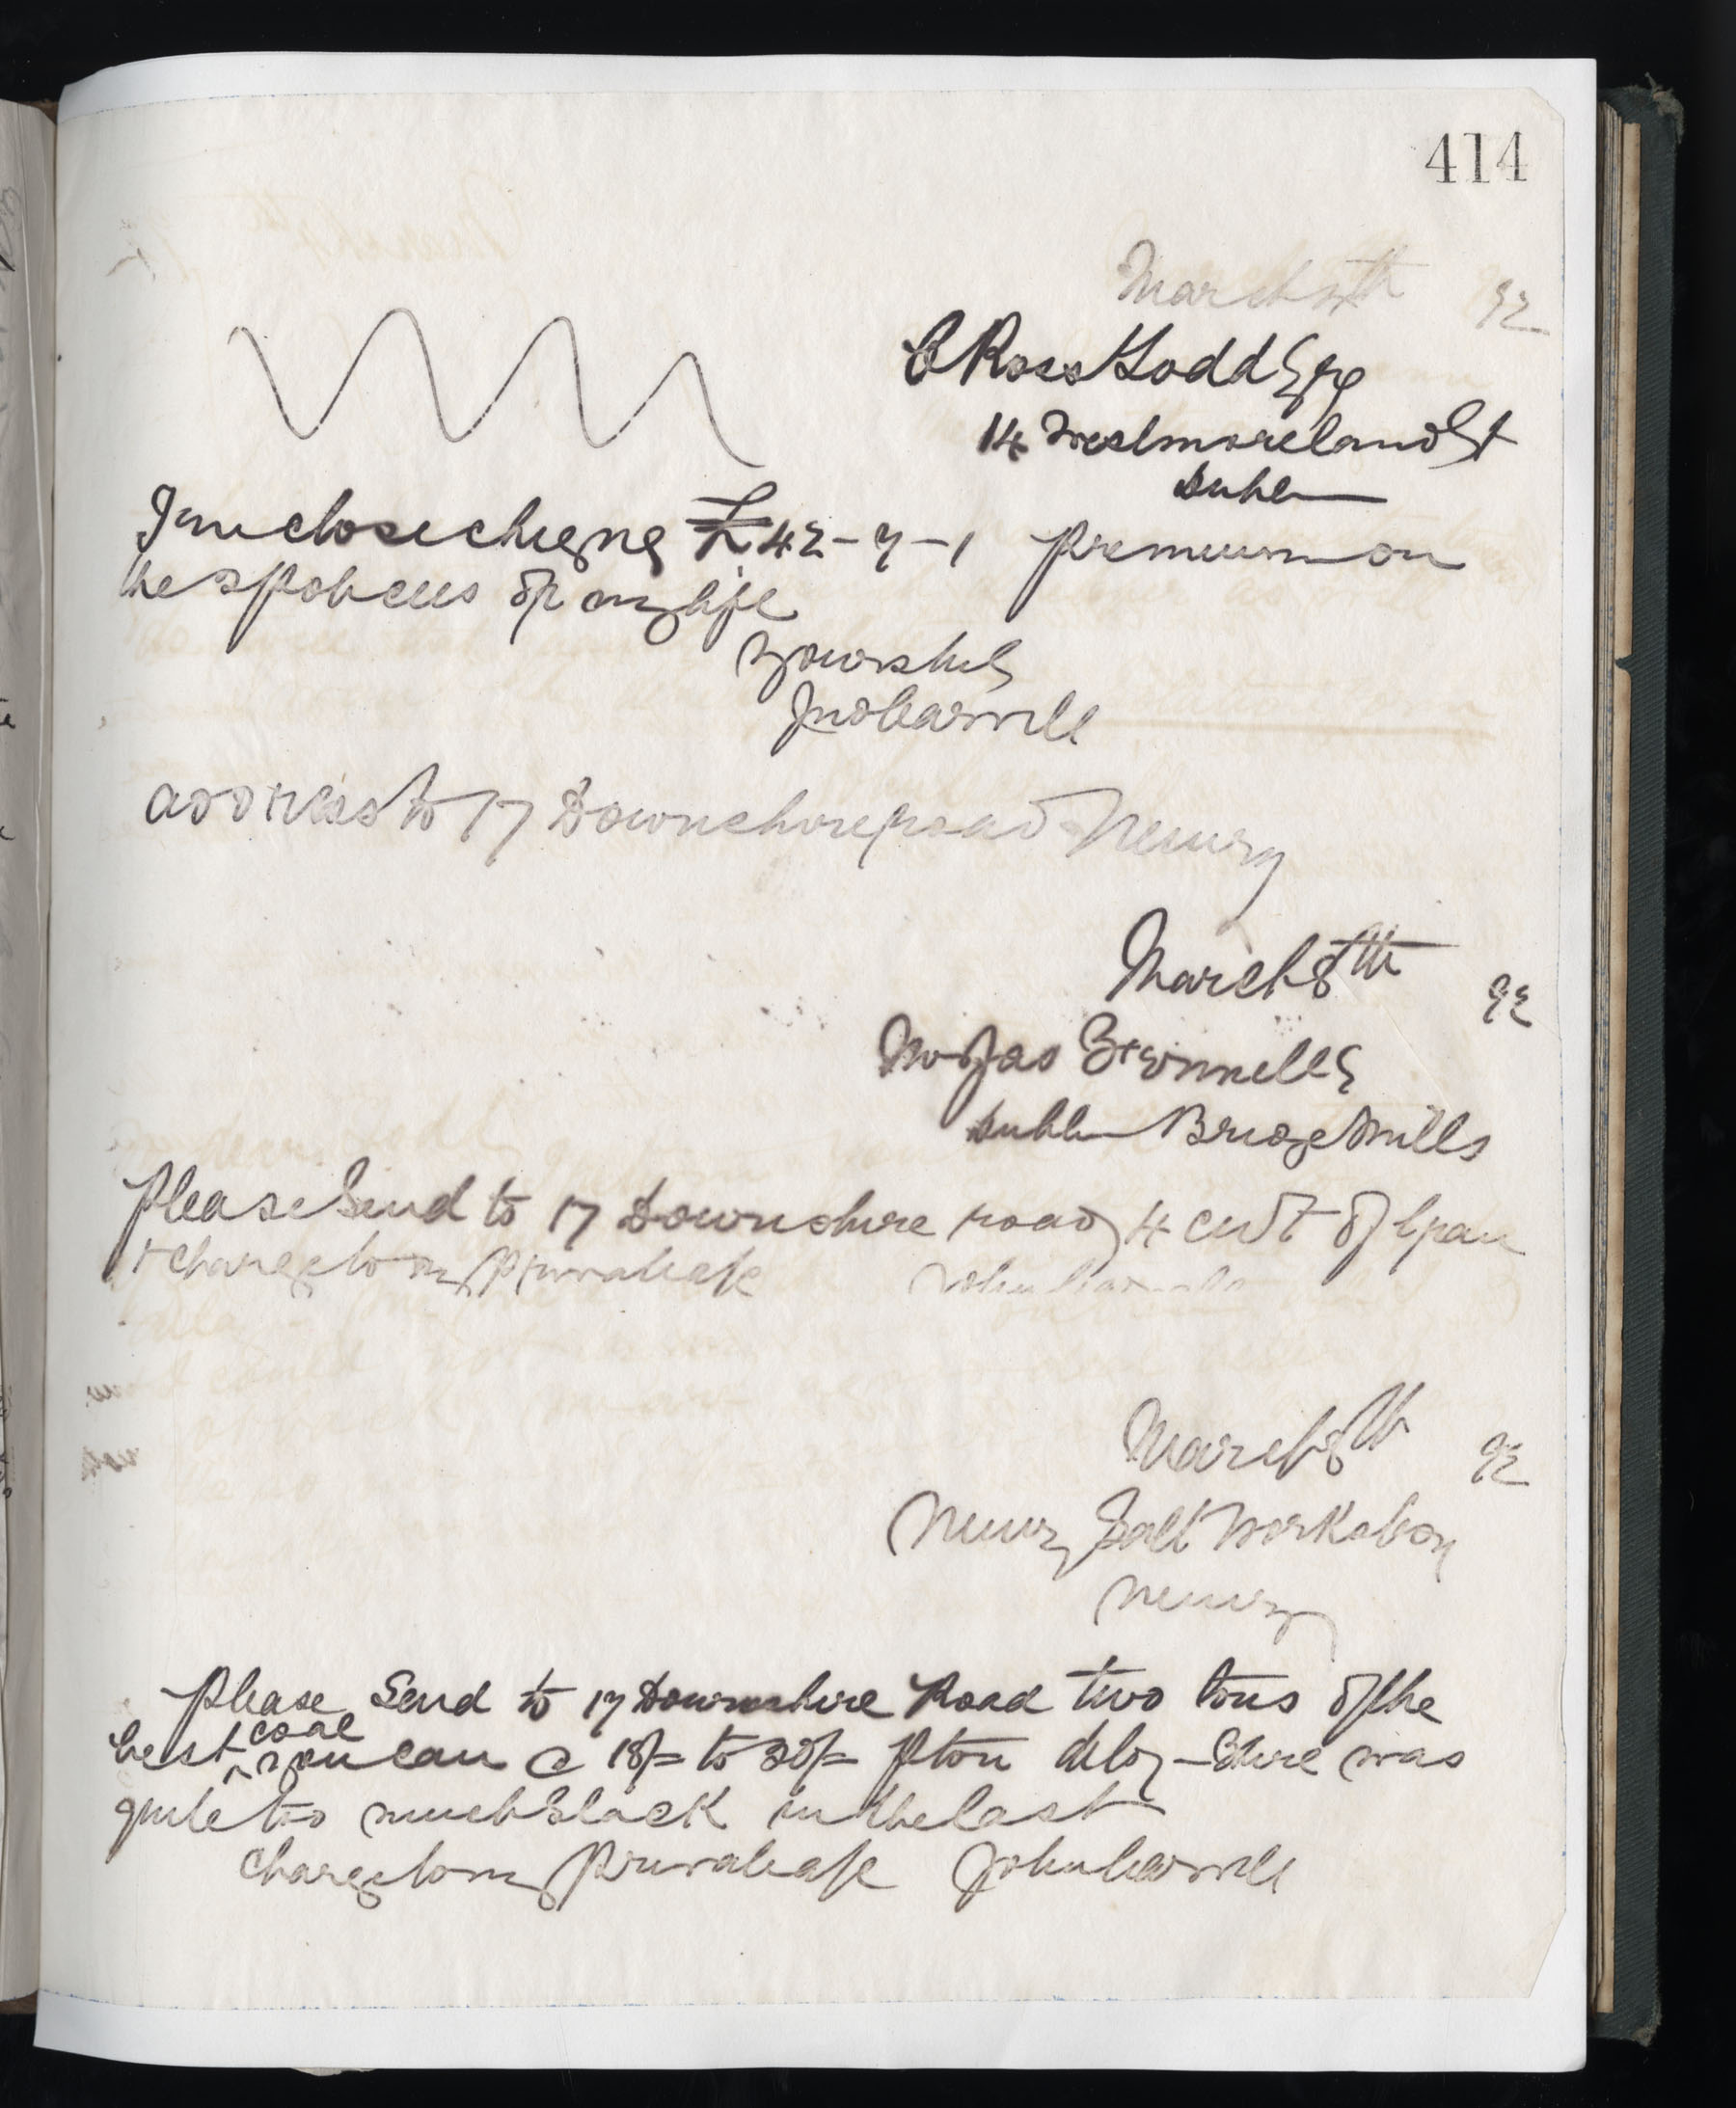 414
March 8th 92
C Ross Todd Esq
14 Westmoreland St
Dublin
I inclose cheque £42-7-1 premium on
the 2 policies of my life
Yours truly
Jno Carvill
address to 17 Downshire road Newry
March 8th 92
Mr Jas
Dublin Bridge Mills
Please Send to 17 Downshire road 4 cwt of
& charge to my Private a/c John Carvill
March 8th 92
Newry Salt Works Coy
Newry
Please Send to 17 Downshire Road two tons of the
best coal you can @ 18/= to 20/= p ton dely - There was
quite too much Slack in the last
Charge to my Private a/c John Carvill